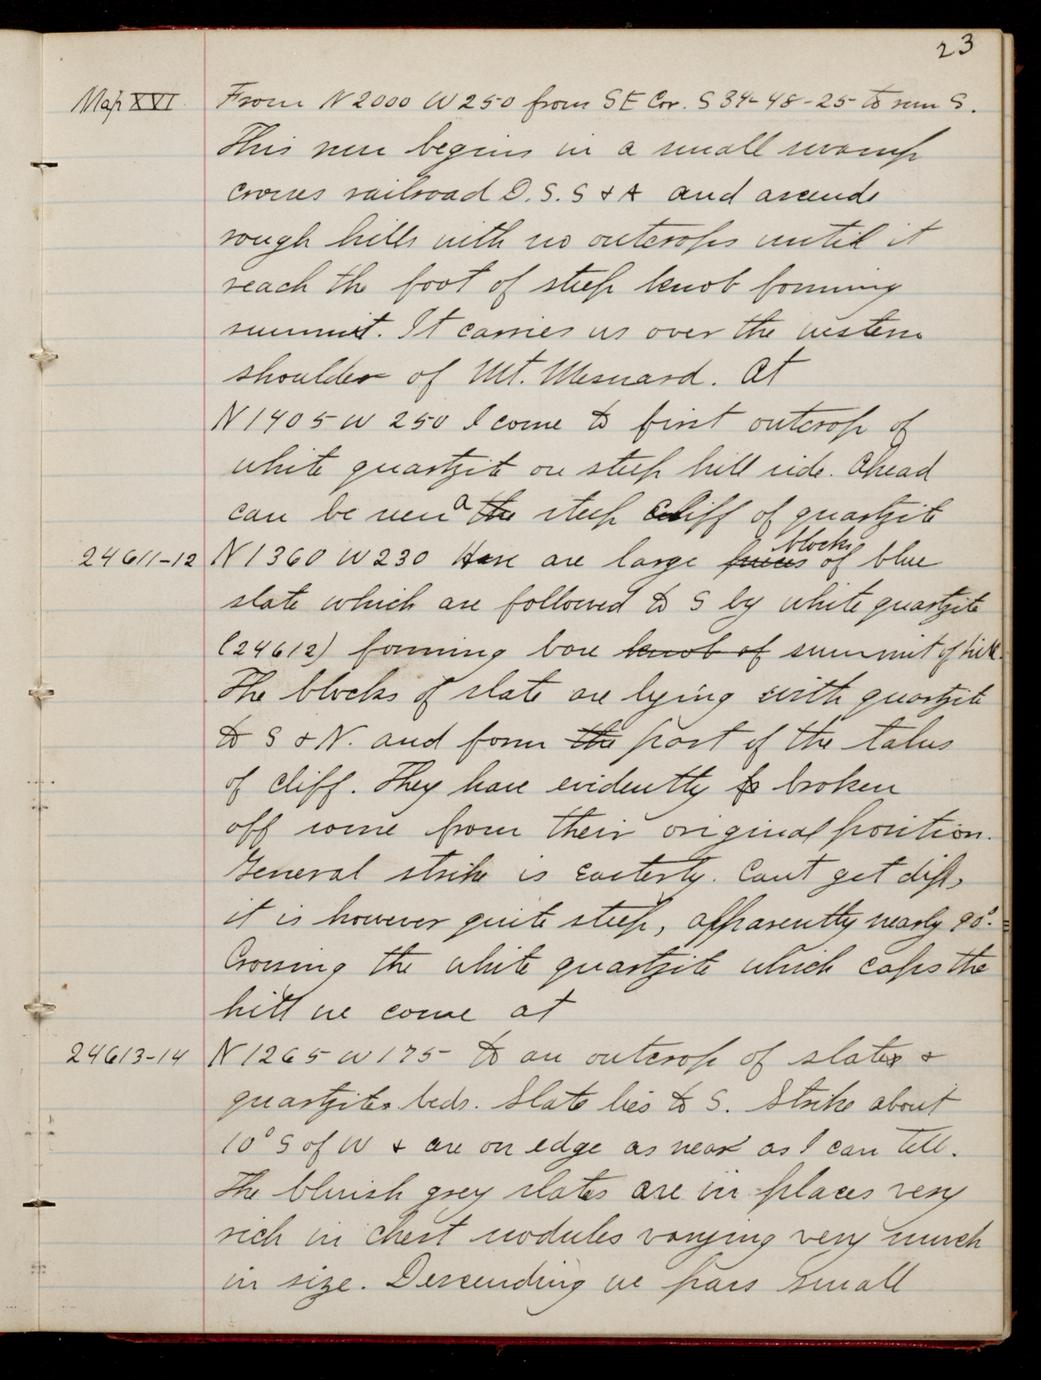 23
Map XVI From N 2000 W 250 from SE Cor. S 34-48-25 to run S.
This run begins in a small swamp
crosses railroad D.S.S & A and ascends
rough hills with no outcrops until it
reach the foot of steep knob forming
summit. It carries us over the western
shoulder of Mt. Mesnard. At
N 1405 W 250 I come to first outcrop of
white quartzite on steep hill side. Ahead
can be seen a the steep cliff of quartzite
24611-12 N 1360 W 230 Here are large pieces blocks of blue
slate which are followed to S by white quartzite
(24612) forming bare knob of summit of hill.
The blocks of slate are lying with quartzite
to S & N. and form the part of the talus
of cliff. They have evidently broken
off some from their original position.
General strike is Easterly. Cant get dip,
it is however quite steep, apparently nearly 90°.
Crossing the white quartzite which caps the
hill we come at
24613-14 N 1265 W 175 to an outcrop of slates &
quartzites beds. Slate lies to S. Strike about
10° S of W & are on edge as near as I can tell.
The bluish grey slates are in places very
rich in chert nodules varying very much
in size. Descending we pass small